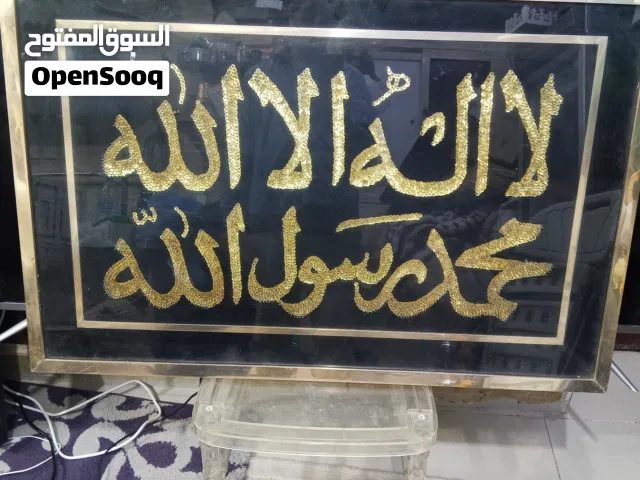 السوق المفتوح
OpenSooq
لا اله الا الله
محمد رسول الله